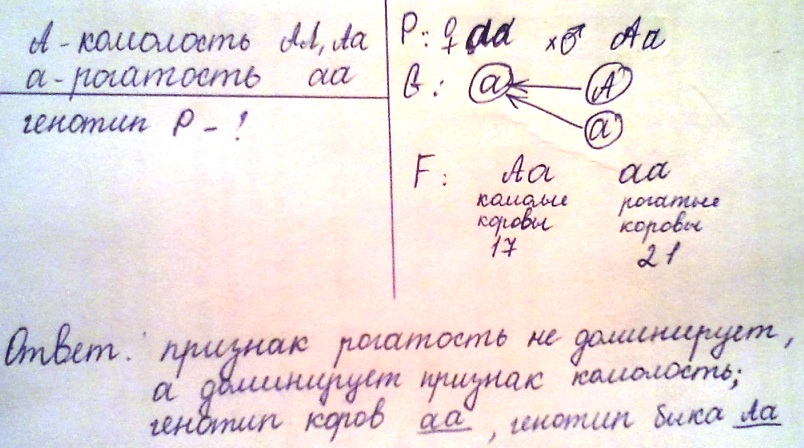 А - комолость АА, Аа
а - рогатость аа
генотип Р - !
Р: ♀ аа х ♂ Аа
G: а А
а
F: Аа аа
комолые рогатые
коровы коровы
17 21
Ответ: признак рогатость не доминирует,
а доминирует признак комолость;
генотип коров аа, генотип быка Аа